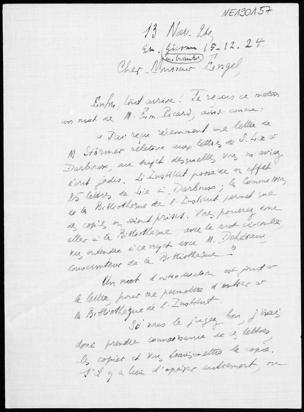 NE190157
13 Nov. 24
15-12.24
Cher Monsieur Engel
Enfin, tout arrive. Je reçois ce matin
un mot de M. Em. Picard, ainsi conçu :
"J'ai reçu récemment une lettre de
M. Störmer relative aux lettres de S. Lie à
Darboux, au sujet desquelles vous m'aviez
écrit jadis. L'Institut possède en effet
lettres de Lie à Darboux; la Commission
de la Bibliothèque de l'Institut permet que
des copies en soient prises. Vous pourrez donc
aller à la Bibliothèque avec le mot ci-contre
vous entendre à ce sujet avec M. Dehérain
conservateur de la Bibliothèque."
Un mot d'introduction est joint à
la lettre, pour me permettre d'entrer à
la Bibliothèque de l'Institut
Si vous le jugez bon, j'irai
donc prendre connaissance de ces lettres,
les copier et vous transmettre la copie.
S'il y a lieu d'opérer autrement, ou